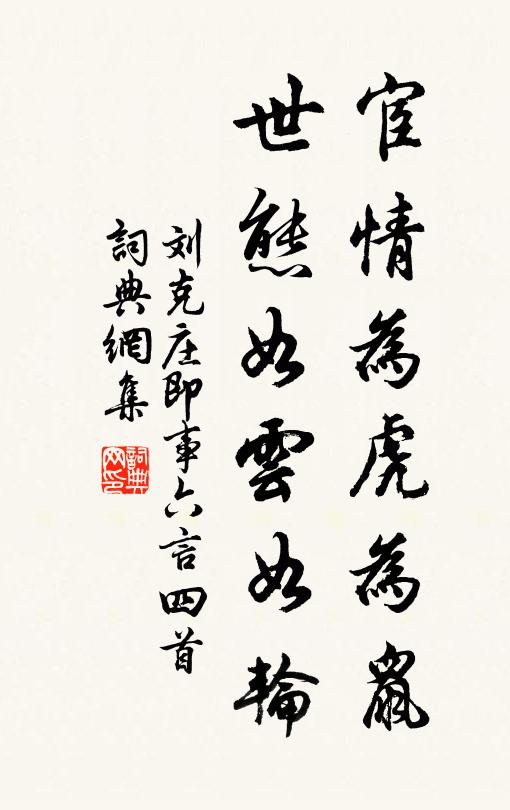 宦情為虎為鼠
世態如雲如輪
刘克庄即事六言四首
詞典網集
詞典网印